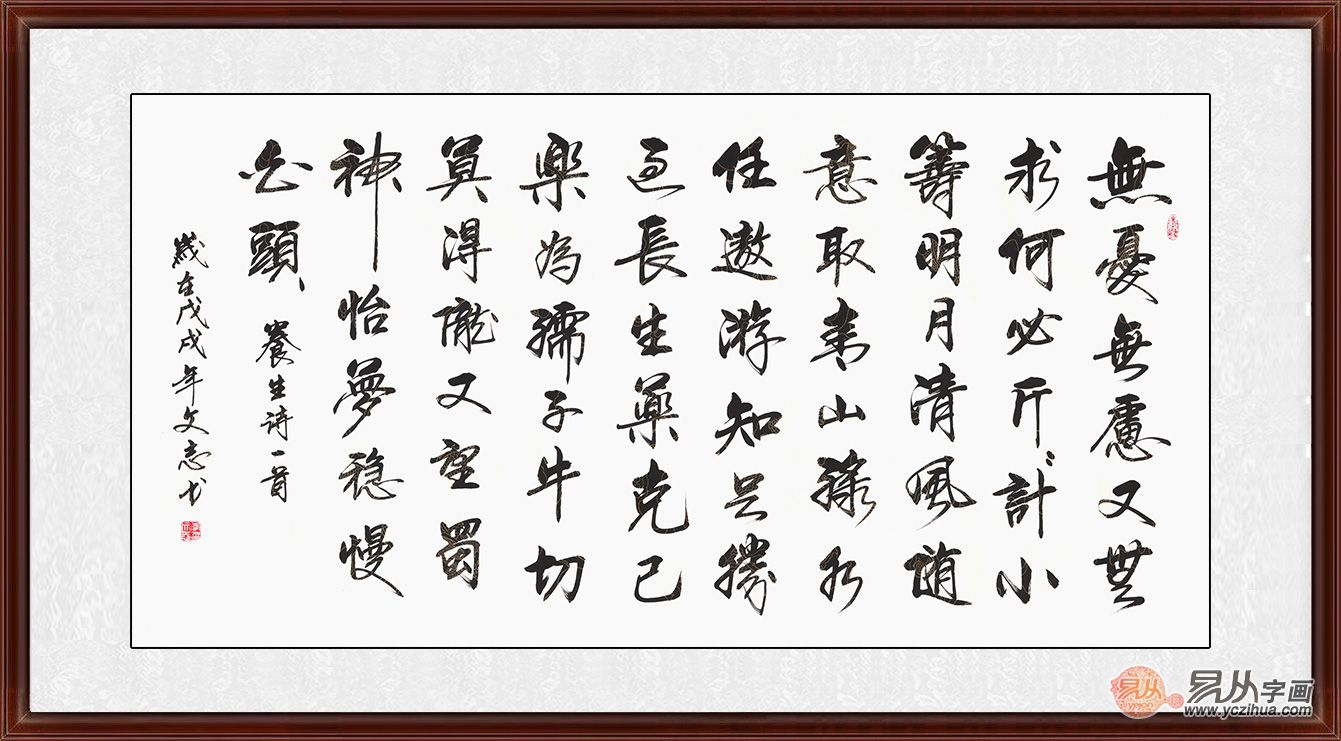 無憂無慮又無
求何必斤々計小
籌明月清風随
意取青山綠水
任遨游知足勝
過長生薬克己
楽為孺子牛切
莫得隴又望蜀
神怡夢稳慢
白頭 養生诗一首
歲在戊戌年文志书
易从
yejon
易从字画
www.yczihua.com